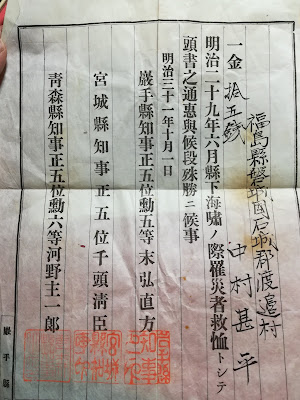 福島縣磐城國石城郡渡邉村
中村甚平
一金 拾五錢
明治二十九年六月縣下海嘯ノ際罹災者救恤トシテ
頭書之通惠與候段殊勝ニ候事
明治三十一年十月一日
巖手縣知事正五位勳五等末弘直方
宮城縣知事正五位千頭淸臣
靑森縣知事正五位勳六等河野主一郎
巖手縣